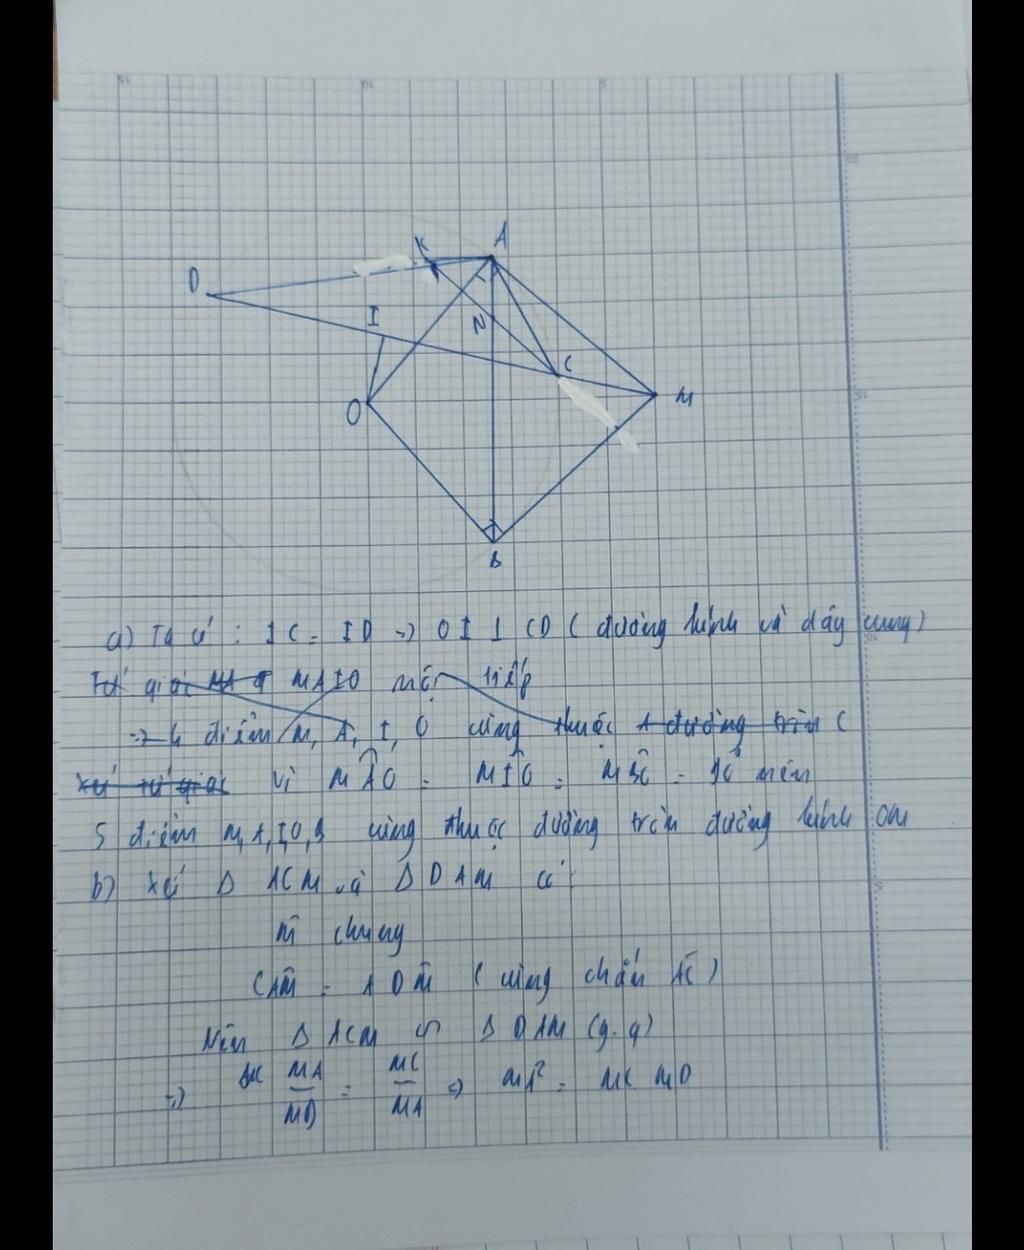 K
A
D
I
N
C
M
O
B
a) Ta có : IC = ID => OI ⊥ CD ( đường kính và dây cung )
Tứ giác MA MAIO nội tiếp
=> 4 điểm M, A, I, O cùng thuộc 1 đường tròn (
Xét tứ giác Vì MÂO = MÎO = = 90° nên
5 điểm M, A, I, O, B cùng thuộc đường tròn đường kính OM
b) Xét Δ ACM và Δ DAM có :
M̂ chung
CÂM = ADM ( cùng chắn AC )
Nên Δ ACM ∽ Δ DAM (g.g)
=> MA/MD = MC/MA => MA² = MC MD